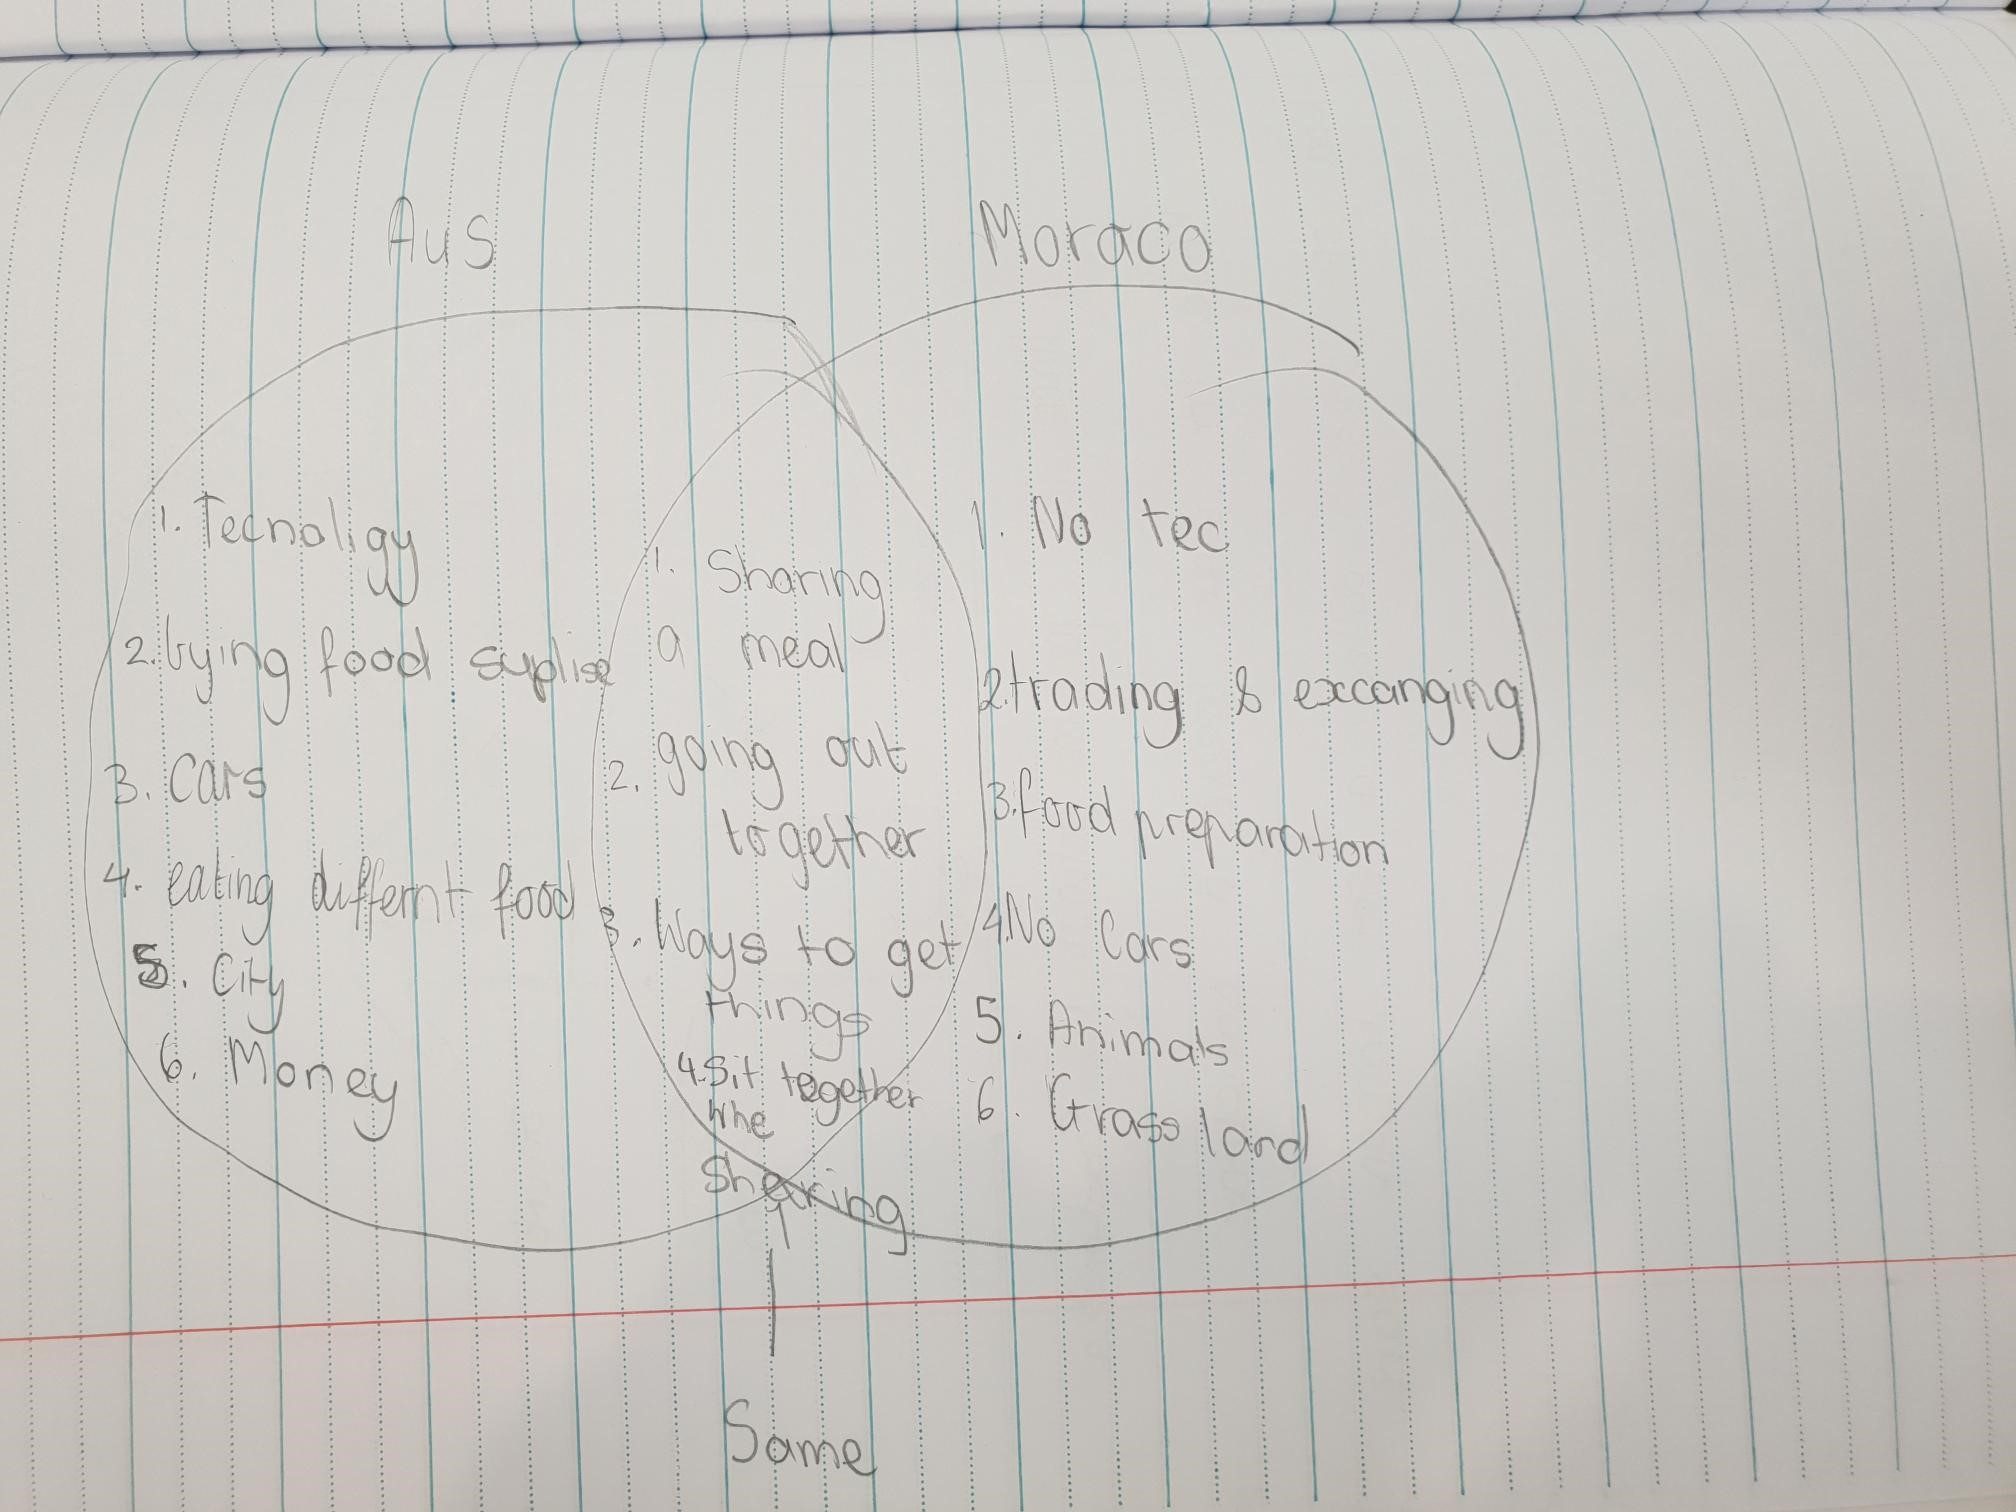 Aus
Moraco
1. Tecnoligy
2. bying food suplise
3. Cars
4. eating differnt food
5. City
6. Money
1. Sharing
a meal
2. going out
together
3. Ways to get
things
4. Sit together
whe
Shearing
1. No tec
2. trading & excanging
3. food preparation
4. No Cars
5. Animals
6. Grass land
Same